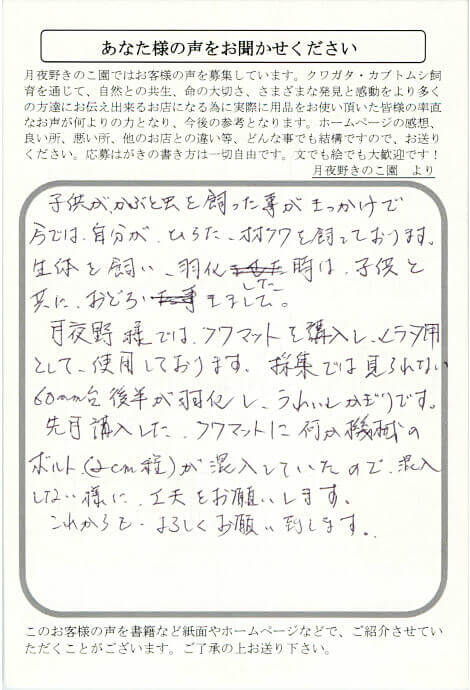 あなた様の声をお聞かせください
月夜野きのこ園ではお客様の声を募集しています。クワガタ・カブトムシ飼
育を通じて、自然との共生、命の大切さ、さまざまな発見と感動をより多く
の方達にお伝え出来るお店になる為に実際に用品をお使い頂いた皆様の率直
なお声が何よりの力となり、今後の参考となります。ホームページの感想、
良い所、悪い所、他のお店との違い等、どんな事でも結構ですので、お送り
ください。応募はがきの書き方は一切自由です。文でも絵でも大歓迎です！
月夜野きのこ園　より
子供が、かぶと虫を飼った事がきっかけで
今では、自分が、ひらた、オオクワを飼っております。
生体を飼い、羽化した時は、子供と
共に、おどろきました。
月夜野様では、クワマットを購入し、ヒラタ用
として、使用しております。採集では見られない
60mm台後半が羽化し、うれしいかぎりです。
先月購入した、クワマットに何か機械の
ボルト(2cm程)が混入していたので、混入
しない様に、工夫をお願いします。
これからも、よろしくお願い致します。
このお客様の声を書籍など紙面やホームページなどで、ご紹介させてい
ただくことがございます。ご了承の上お送り下さい。